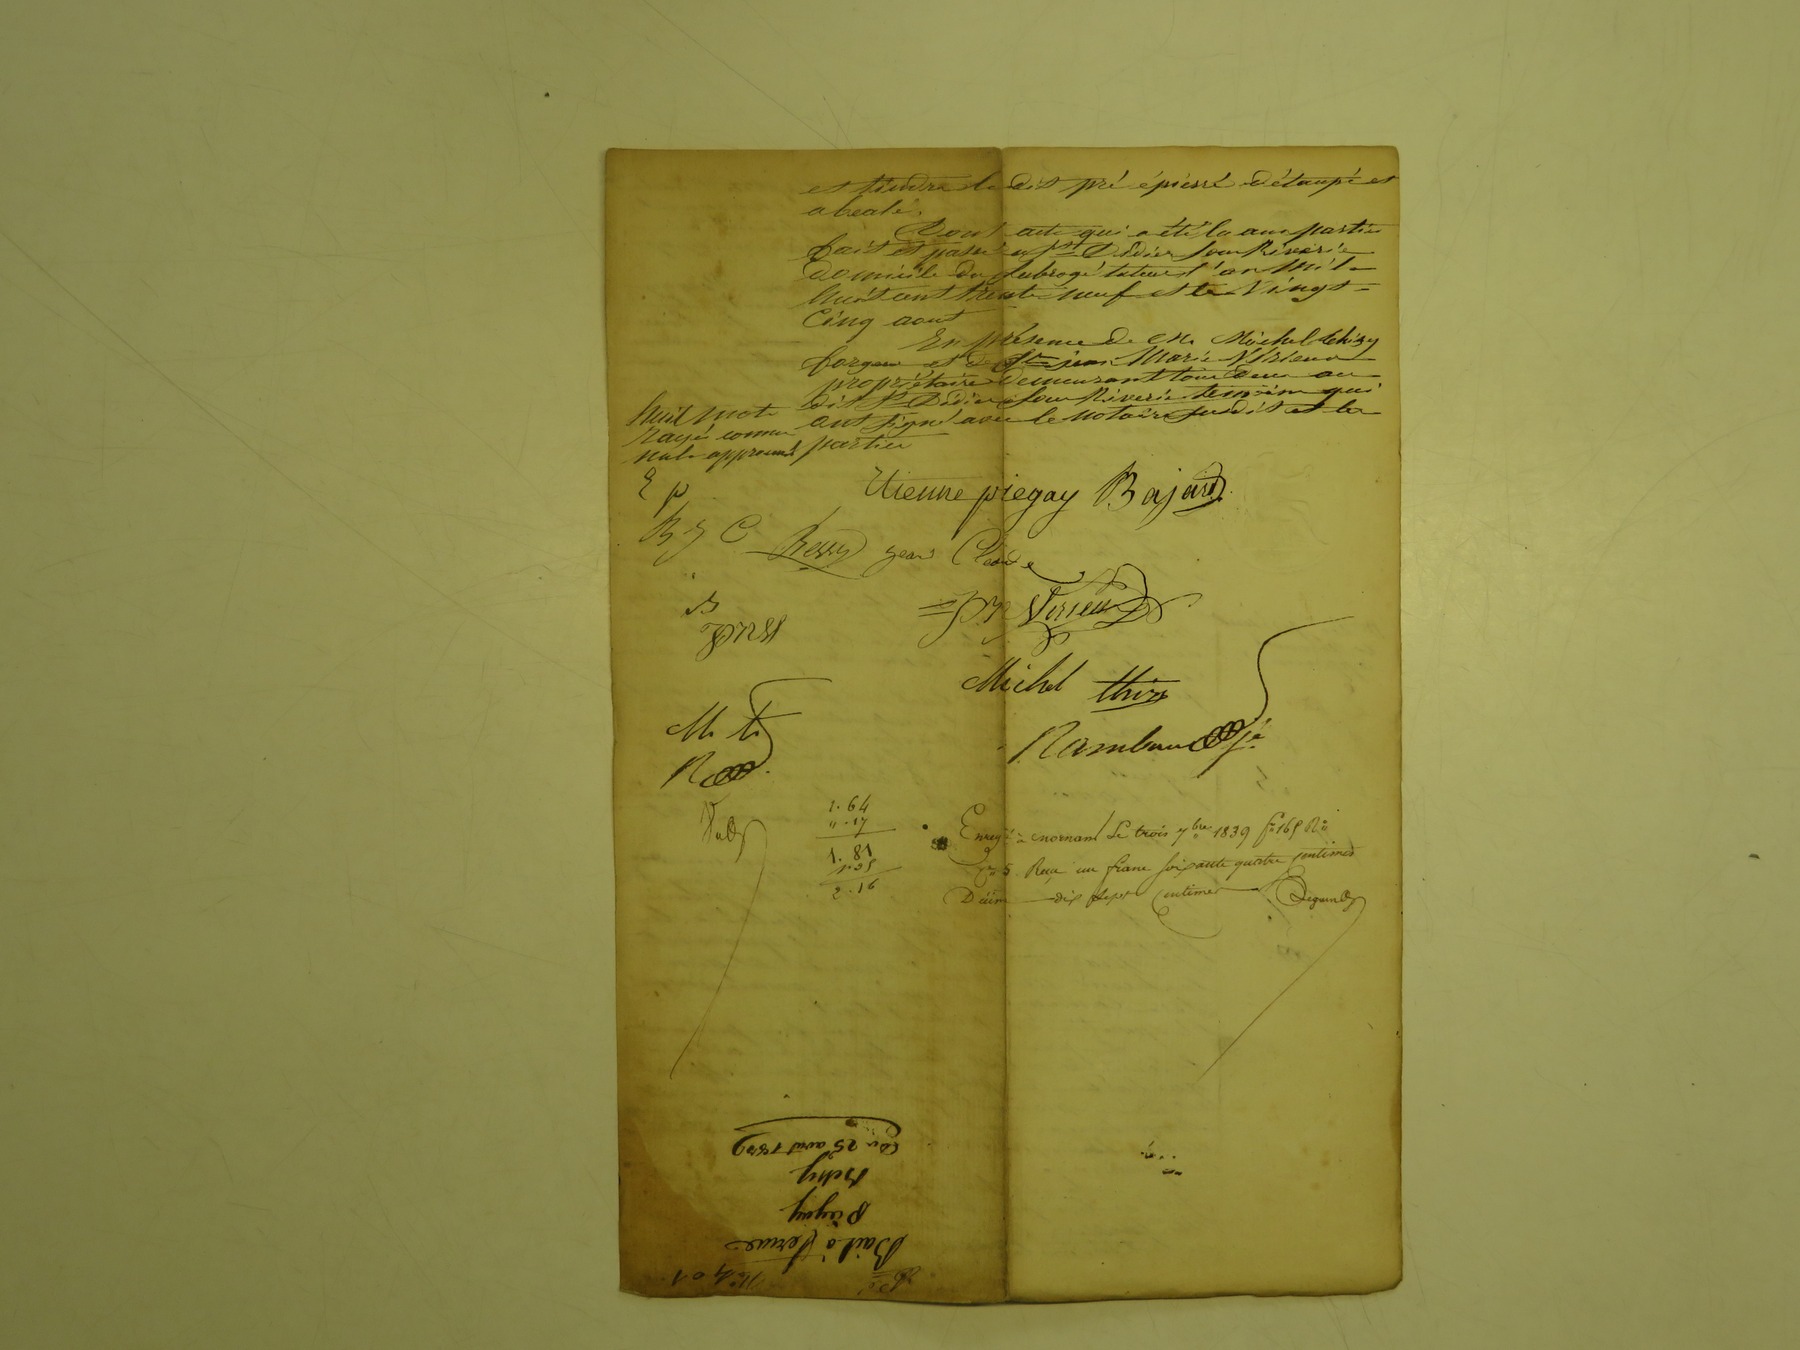 et tiendra le dit pré épierré détaupé et
abealé.
Dont acte qui a été lu aux parties
fait et passé a St Didier sous Riverie
domicile du subrogé tuteur l'an Mil
huit cent trente neuf et le Vingt
Cinq aout
En présence de Me Michel thizy
forgeur et de Sr jean Marie Virieux
propriétaire demeurant tous deux au
dit St Didier sous Riverie temoins qui
ont signé avec le notaire susdit et les
parties
huit mots
rayés comme
nuls approuvés
E p
Etienne piegay Bajard
B J C
Bessy jean Claude
JM Virieux
Michel thizy
M. t.
Rambaud
R
1.64
".17
1.81
1.35
2.16
Enregé a mornant Le trois 7bre 1839 fo 165 Ro
Co 5. Reçu un franc soixante quatre centimes
Décime dix sept Centimes
No 401
Bail à ferme
Piegay
Bessy
Du 25 aout 1839